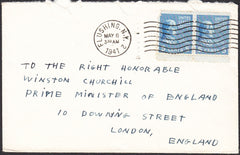 FLUSHING, N.Y.
MAY 6
1941
TO THE RIGHT HONORABLE
WINSTON CHURCHILL
PRIME MINISTER OF ENGLAND
10 DOWNING STREET
LONDON,
ENGLAND